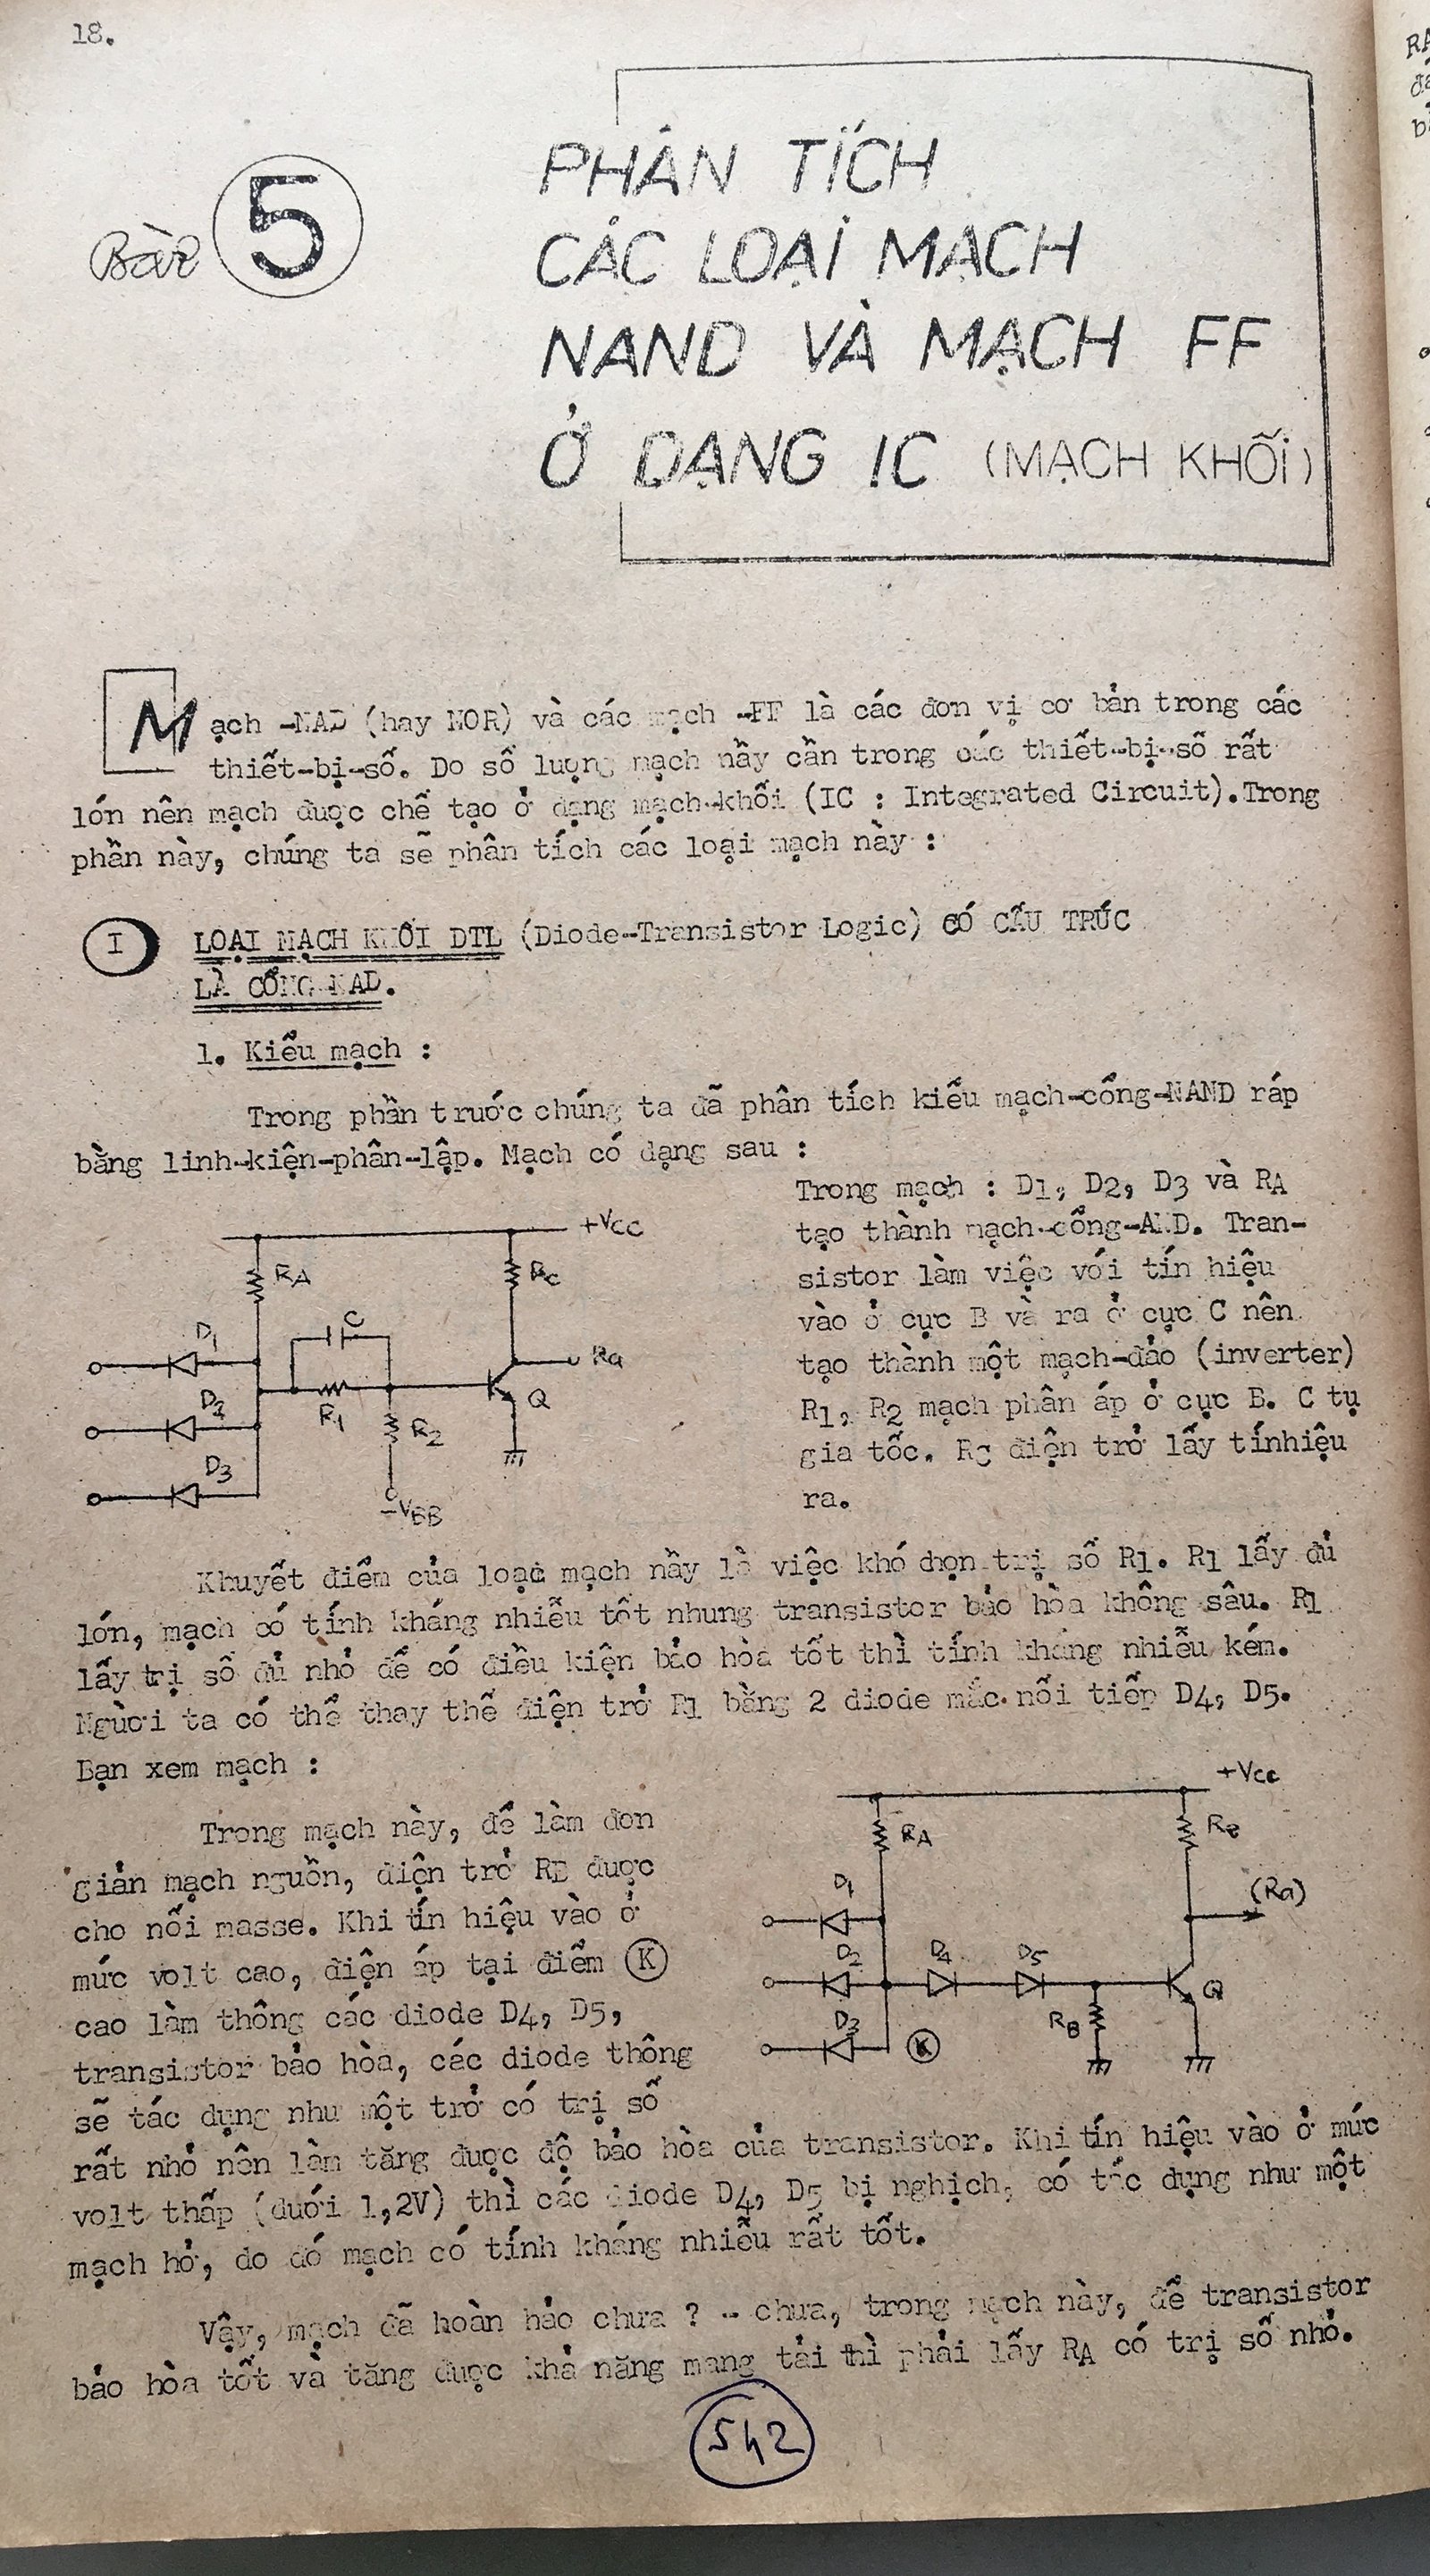 18.
Bài 5
PHÂN TÍCH
CÁC LOẠI MẠCH
NAND VÀ MẠCH FF
Ở DẠNG IC (MẠCH KHỐI)
Mạch -NAD (hay NOR) và các mạch -FF là các đơn vị cơ bản trong các
thiết-bị-số. Do số lượng mạch nầy cần trong các thiết-bị-số rất
lớn nên mạch được chế tạo ở dạng mạch-khối (IC : Integrated Circuit).Trong
phần này, chúng ta sẽ phân tích các loại mạch này :
I LOẠI MẠCH KHỐI DTL (Diode-Transistor Logic) CÓ CẤU TRÚC
LÀ CỔNG NAD.
1. Kiểu mạch :
Trong phần trước chúng ta đã phân tích kiểu mạch-cổng-NAND ráp
bằng linh-kiện-phân-lập. Mạch có dạng sau :
Trong mạch : D1, D2, D3 và RA
tạo thành mạch-cổng-AND. Tran-
sistor làm việc với tín hiệu
vào ở cực B và ra ở cực C nên
tạo thành một mạch-đảo (inverter)
R1, R2 mạch phân áp ở cực B. C tụ
gia tốc. RC điện trở lấy tínhiệu
ra.
+VCC
RA
RC
D1
C
Ra
D2
R1
R2
Q
D3
-VBB
Khuyết điểm của loại mạch nầy là việc khó chọn trị số R1. R1 lấy đủ
lớn, mạch có tính kháng nhiễu tốt nhưng transistor bảo hòa không sâu. R1
lấy trị số đủ nhỏ để có điều kiện bảo hòa tốt thì tính kháng nhiễu kém.
Người ta có thể thay thế điện trở R1 bằng 2 diode mắc nối tiếp D4, D5.
Bạn xem mạch :
Trong mạch này, để làm đơn
giản mạch nguồn, điện trở RB được
cho nối masse. Khi tín hiệu vào ở
mức volt cao, điện áp tại điểm K
cao làm thông các diode D4, D5,
transistor bảo hòa, các diode thông
sẽ tác dụng như một trở có trị số
+Vcc
RA
D1
(Ra)
D2
D4
D5
Q
D3
K
RB
rất nhỏ nên làm tăng được độ bảo hòa của transistor. Khi tín hiệu vào ở mức
volt thấp (dưới 1,2V) thì các diode D4, D5 bị nghịch, có tác dụng như một
mạch hở, do đó mạch có tính kháng nhiễu rất tốt.
Vậy, mạch đã hoàn hảo chưa ? - chưa, trong mạch này, để transistor
bảo hòa tốt và tăng được khả năng mang tải thì phải lấy RA có trị số nhỏ.
542